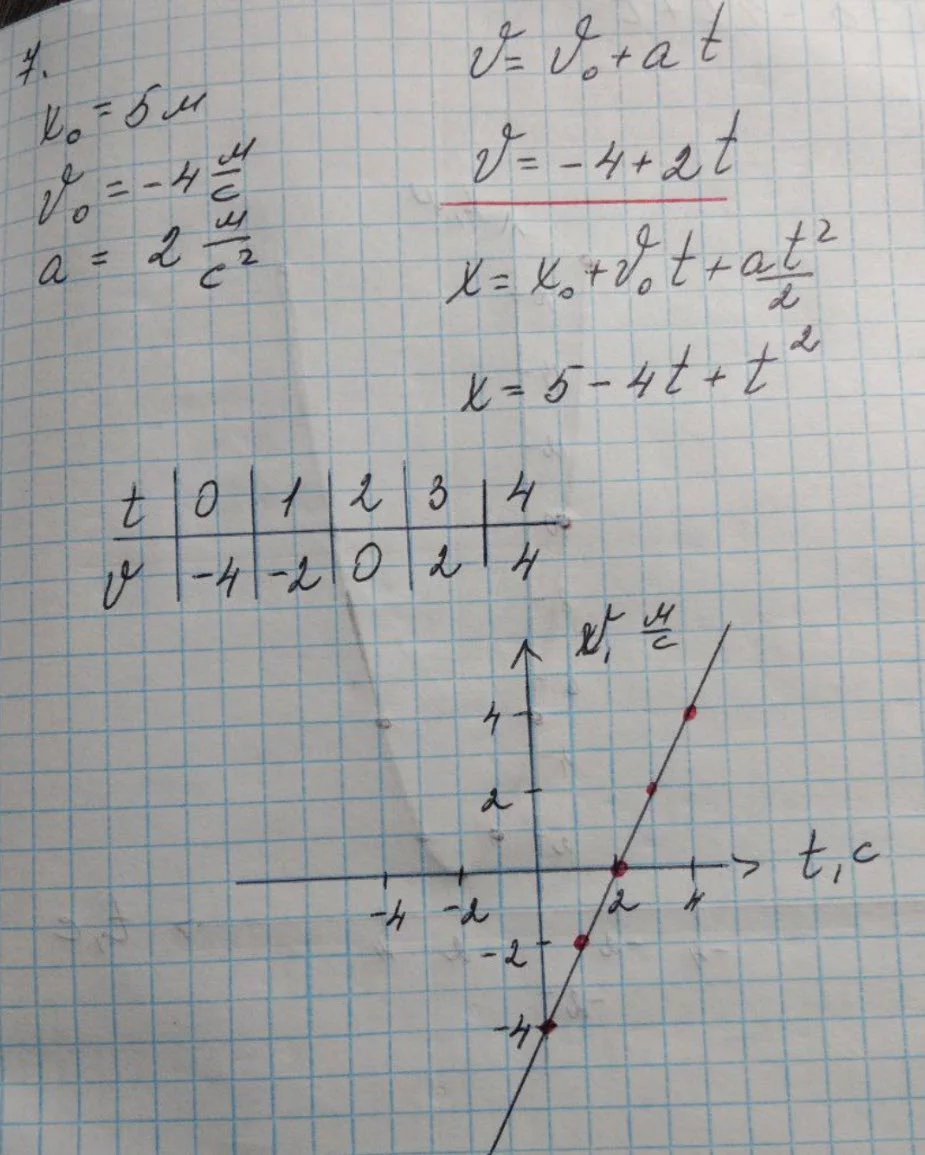 7.
x₀ = 5 м
υ₀ = -4 м/с
a = 2 м/с²
υ = υ₀ + a t
υ = -4 + 2t
x = x₀ + υ₀t + at²/2
x = 5 - 4t + t²
t | 0 | 1 | 2 | 3 | 4
υ | -4 | -2 | 0 | 2 | 4
υ, м/с
4
2
t, с
-4 -2 2 4
-2
-4